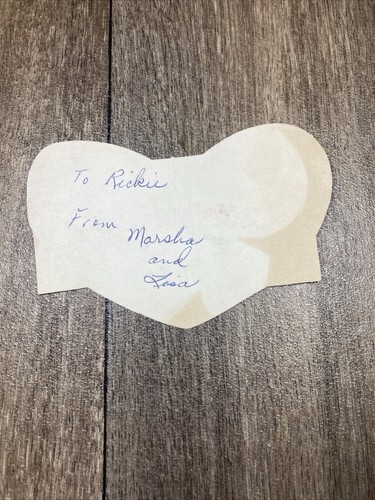 To Rickie
From
Marsha
and
Lisa